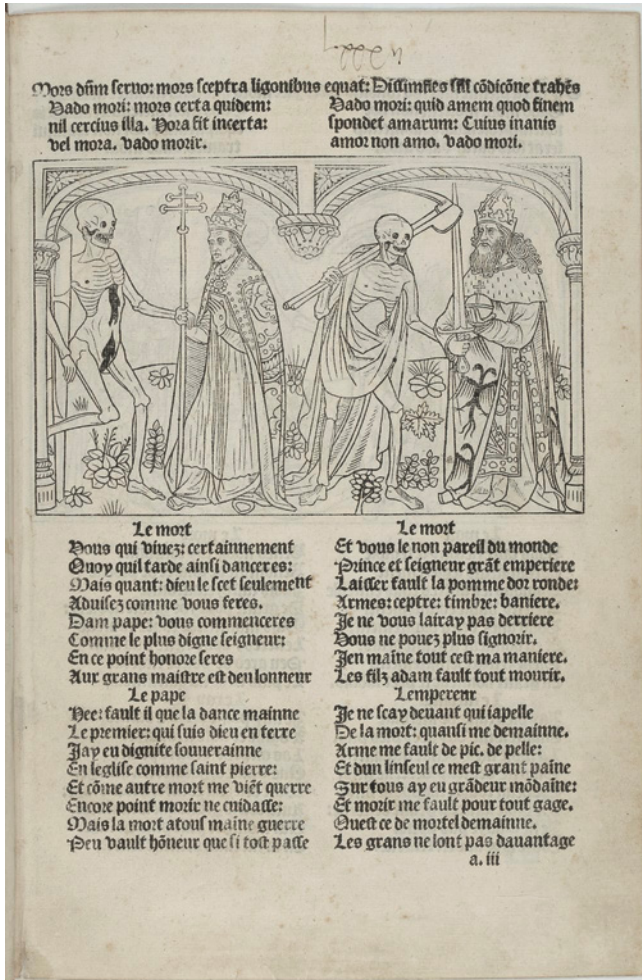 Mors dñm seruo: mors sceptra ligonibus equat: cõdicõne trahẽs
Vado mori: mors certa quidem:
nil cercius illa. Hora fit incerta:
vel mora. vado morir.
Vado mori: quid amem quod finem
spondet amarum: Cuius inanis
amor non amo. vado mori.
Le mort
Vous qui viuez: certainnement
Quoy quil tarde ainsi danceres:
Mais quant: dieu le scet seulement
Aduisez comme vous feres.
Dam pape: vous commenceres
Comme le plus digne seigneur:
En ce point honore seres
Aux grans maistre est deu lonneur
Le pape
Hee: fault il que la dance mainne
Le premier: qui suis dieu en terre
Jay eu dignite souuerainne
En leglise comme saint pierre:
Et cõme autre mort me viẽt querre
Encore point morir ne cuidasse:
Mais la mort atous maine guerre
Peu vault hõneur que si tost passe
Le mort
Et vous le non pareil du monde
Prince et seigneur grãt emperiere
Laisser fault la pomme dor ronde:
Armes: ceptre: timbre: baniere.
Je ne vous lairay pas derriere
Vous ne pouez plus signorir.
Jen maĩne tout cest ma maniere.
Les filz adam fault tout mourir.
Lempereur
Je ne scay deuant qui iapelle
De la mort: quansi me demainne.
Arme me fault de pic. de pelle:
Et dun linseul ce mest grant paĩne
Sur tous ay eu grãdeur mõdaĩne:
Et morir me fault pour tout gage.
Quest ce de mortel demainne.
Les grans ne lont pas dauantage
a. iii